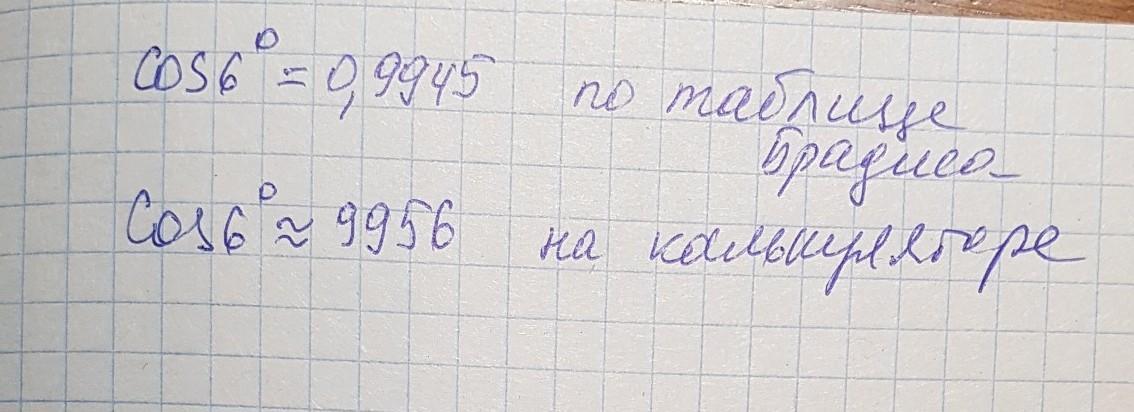 Cos6° = 0,9945 по таблице
Брадиса
Cos6° ≈ 9956 на калькуляторе